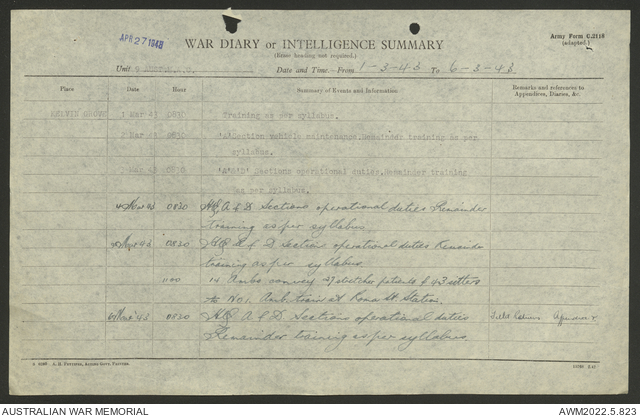 APR 27 1943
Army Form C.2118
(adapted.)
WAR DIARY or INTELLIGENCE SUMMARY
(Erase heading not required.)
Unit
Date and Time—From 1-3-43 To 6-3-43
Place Date Hour Summary of Events and Information Remarks and references to
Appendices, Diaries, &c.
KELVIN GROVE 1 Mar 43 0830 Training as per syllabus.
2 Mar 43 0830 'A' Section vehicle maintenance. Remainder training as per
syllabus.
3 Mar 43 0830 'A' & 'D' Sections operational duties. Remainder training
as per syllabus.
4 Mar 43 0830 HQ A & D Sections operational duties Remainder
training as per syllabus.
5 Mar 43 0830 HQ A & D Section operational duties Remainder
training as per syllabus
1100 14 Ambs convey 27 stretcher patients & 43 sitters
to No 1. Amb. train at Roma St. Station.
6 Mar 43 0830 HQ A & D Sections operational duties Field Returns Appendix
Remainder training as per syllabus.
AUSTRALIAN WAR MEMORIAL AWM2022.5.823